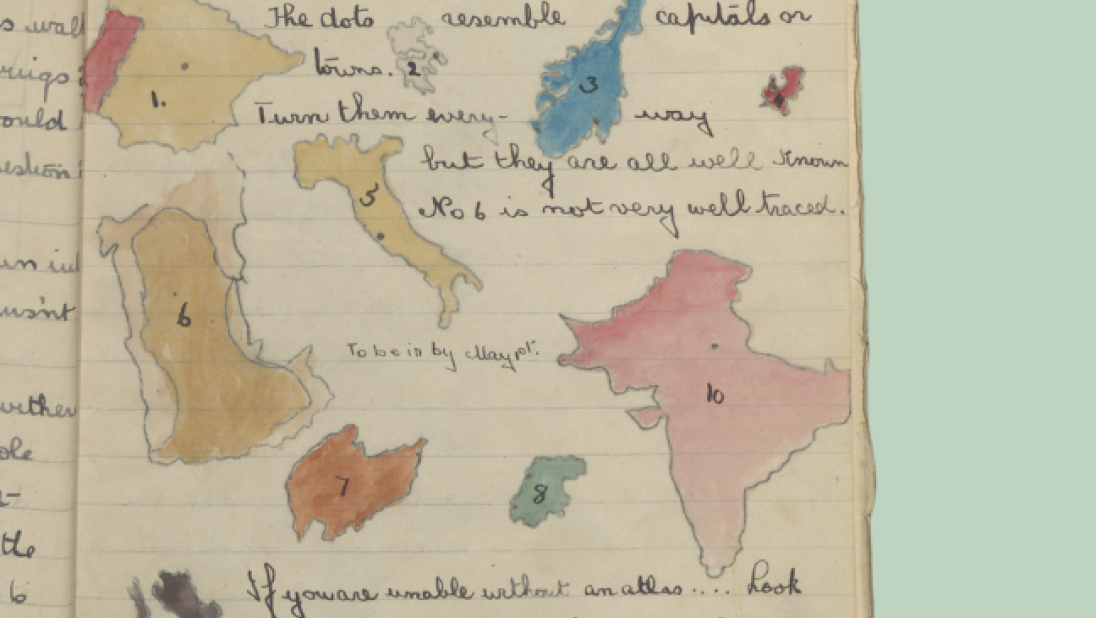 The dots resemble capitals or
towns. 2 3
1. Turn them every- way
but they are all well known
5 No 6 is not very well traced.
6
To be in by May 1st.
10
7 8
If you are unable without an atlas.... Look
ould
estion
usn't
ole
the
6